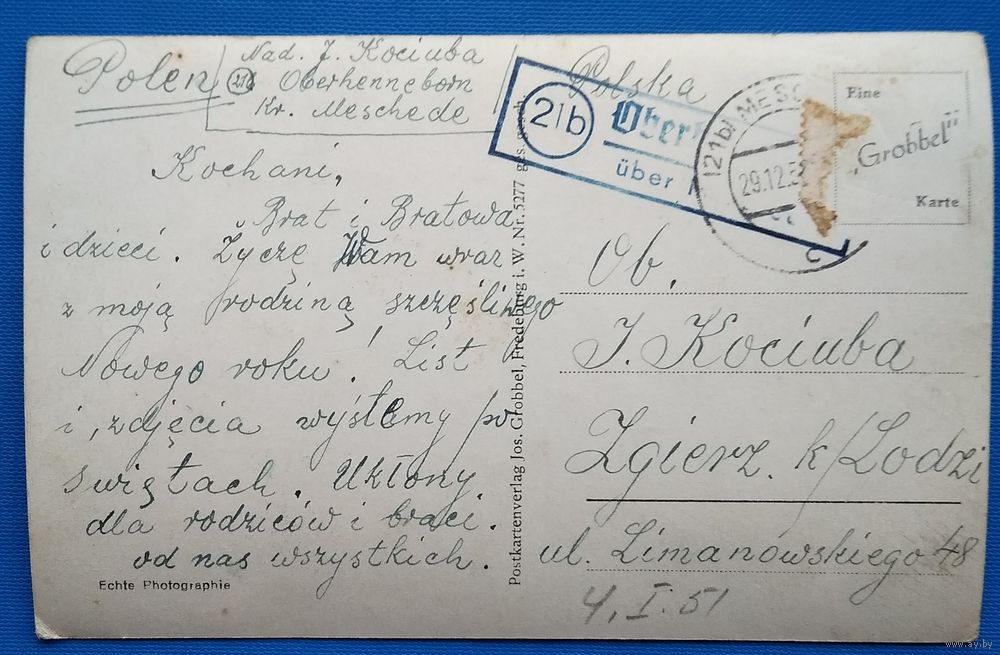 Polen
Nad. J. Kociuba
21b Oberhenneborn
Kr. Meschede
Kochani,
Brat i Bratowa
i dzieci. Życzę Wam wraz
z moją rodziną szczęśliwego
Nowego roku! List
i, zdjęcia wyślemy po
świętach. Ukłony.
dla rodziców i braci.
od nas wszystkich.
Echte Photographie
Postkartenverlag Jos. Grobbel, Fredeburg i. W. Nr. 5277 ges. gesch.
Polska
21b
Ober
über
(21b) MESC
29.12.5
Eine
„Grobbel"
Karte
Ob.
J. Kociuba
Zgierz. k/Lodzi
ul. Limanowskiego 48
4. I. 51
www.ay.by